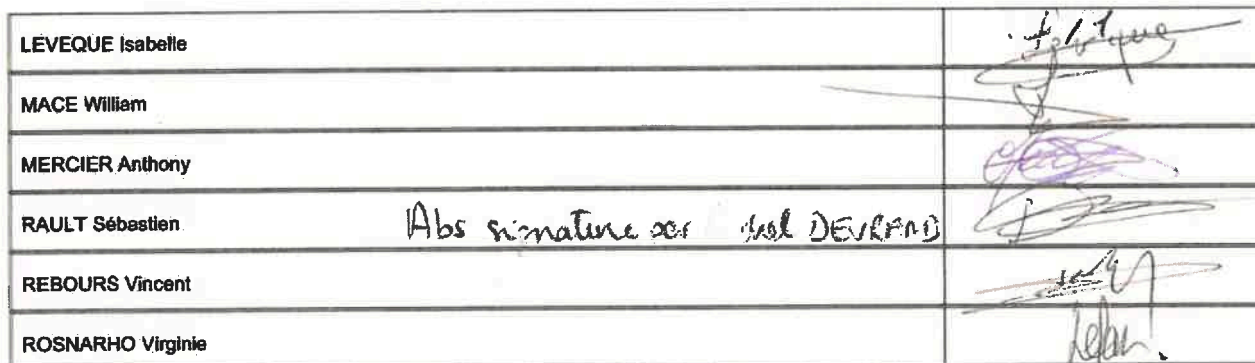 LEVEQUE Isabelle
MACE William
MERCIER Anthony
RAULT Sébastien Abs signature par DEVREND
REBOURS Vincent
ROSNARHO Virginie